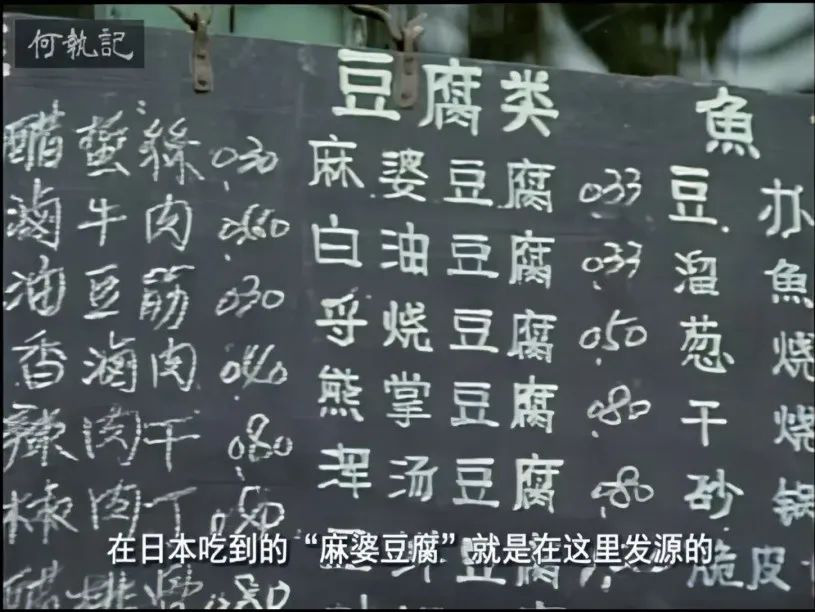 何執記
醋蜇絲 0.30
滷牛肉 0.60
油豆筋 0.30
香滷肉 0.40
辣肉干 0.80
椒肉丁
豆腐类
麻婆豆腐 0.33
白油豆腐 0.33
乎烧豆腐 0.50
熊掌豆腐 0.80
浑汤豆腐 0.80
豆腐
魚
豆办
溜魚
葱烧
干烧
砂锅
脆皮
在日本吃到的“麻婆豆腐”就是在这里发源的